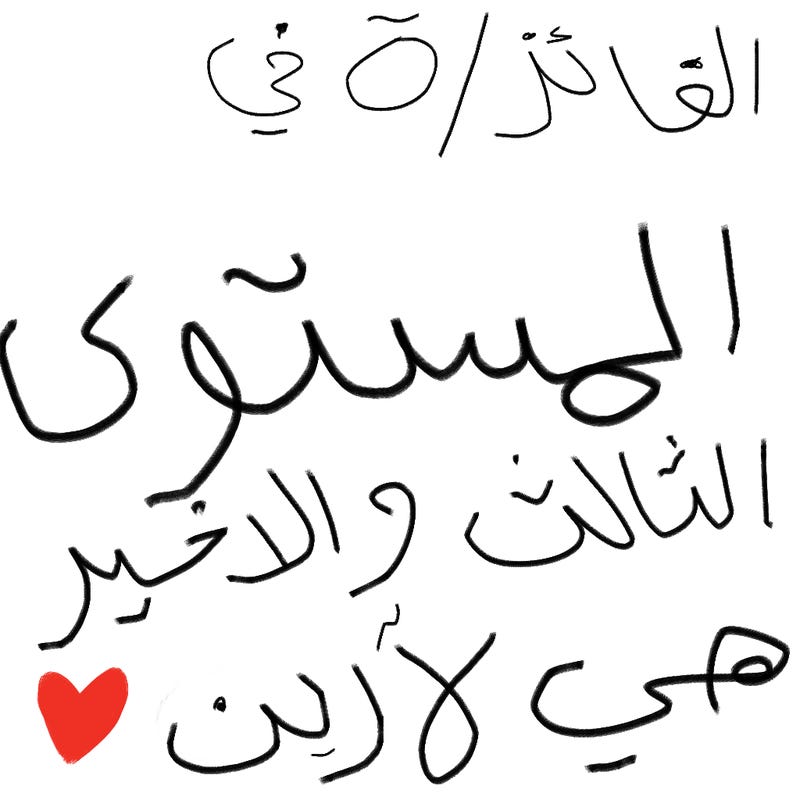 الفائز/ة في
المستوى
الثالث والاخير
هي لأرين